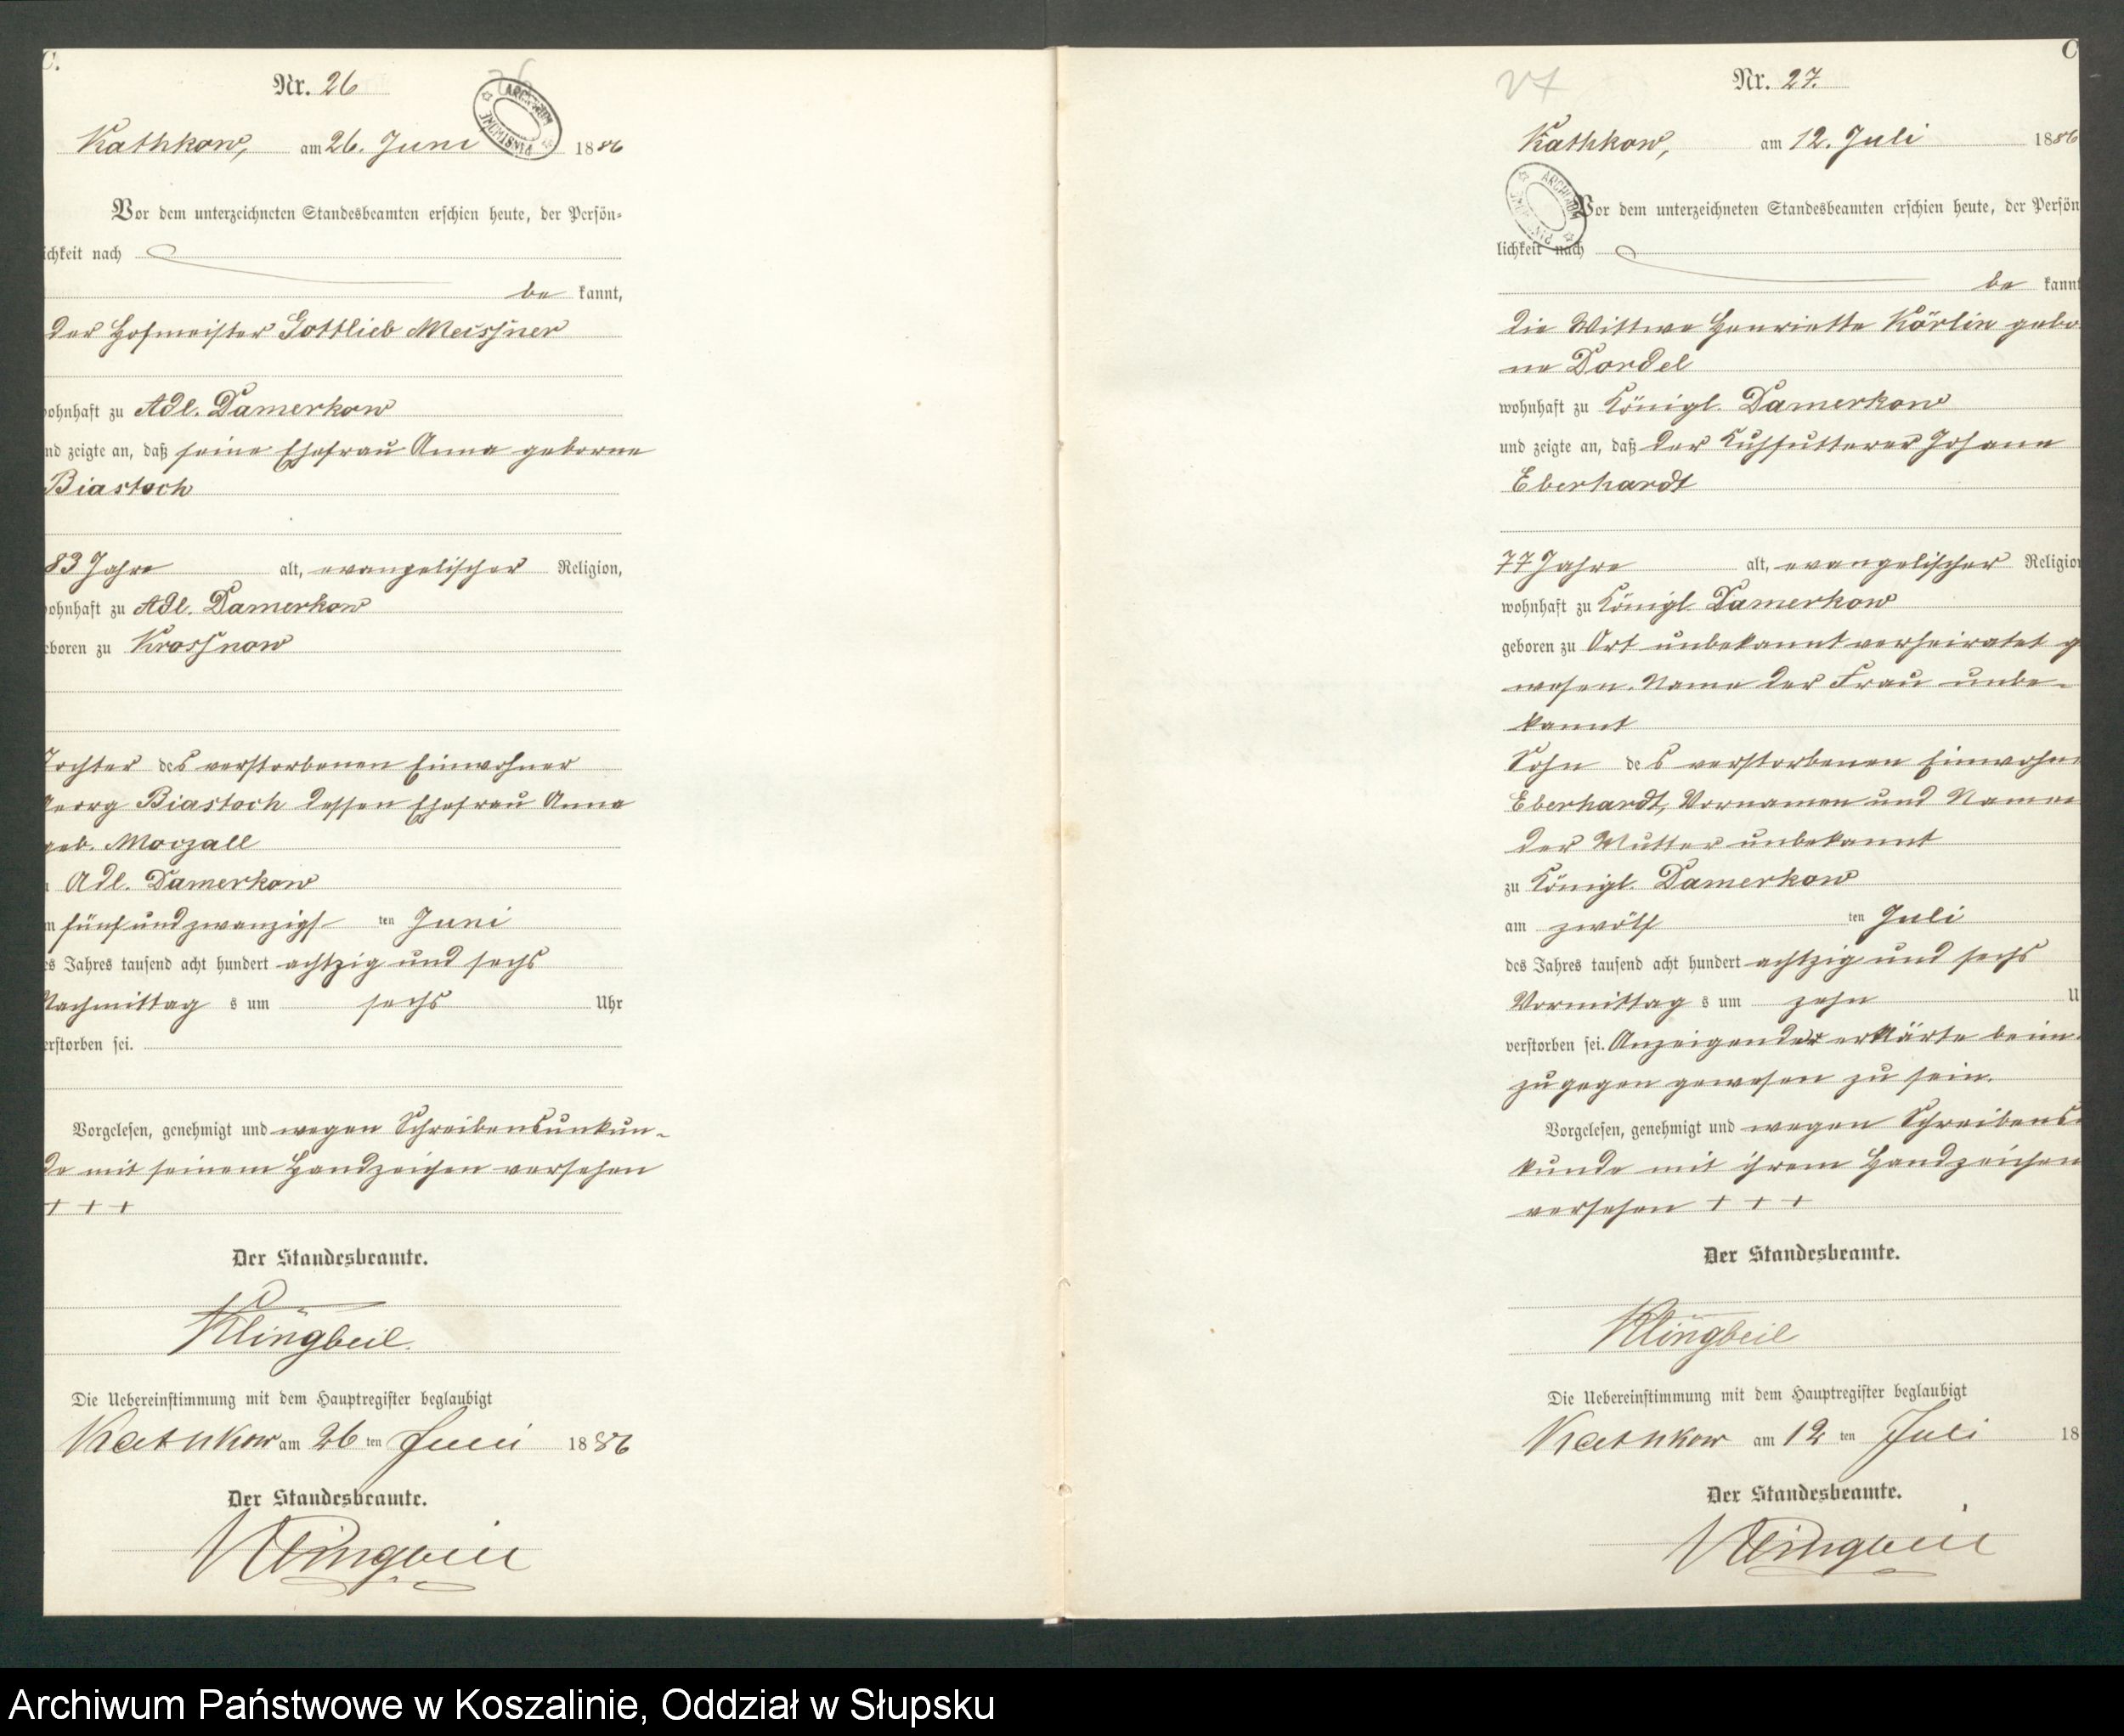 C.
Nr. 26
26
ARCHIWUM PAŃSTWOWE
Kathkow, am 26. Juni 1886
Vor dem unterzeichneten Standesbeamten erschien heute, der Persön-
ichkeit nach
be kannt,
der Hofmeister Gottlieb Meissner
wohnhaft zu Adl. Damerkow
nd zeigte an, daß seine Ehefrau Anna geborne
Biastoch
83 Jahre alt, evangelischer Religion,
ohnhaft zu Adl. Damerkow
eboren zu Krossnow
Tochter des verstorbenen Einwohner
Georg Biastoch dessen Ehefrau Anna
geb. Morzall
Adl. Damerkow
m fünf und zwanzigs ten Juni
es Jahres tausend acht hundert achtzig und sechs
Nachmittag s um sechs Uhr
erstorben sei.
Vorgelesen, genehmigt und wegen Schreibensunkun-
de mit seinem Handzeichen versehen
+ + +
Der Standesbeamte.
Klingbeil.
Die Uebereinstimmung mit dem Hauptregister beglaubigt
Kathkow am 26 ten Juni 1886
Der Standesbeamte.
Klingbeil
C
27
Nr. 27.
Kathkow, am 12. Juli 1886
ARCHIWUM PAŃSTWOWE
Vor dem unterzeichneten Standesbeamten erschien heute, der Persön
lichkeit nach
be kannt
die Wittwe Henriette Körlin gebo
ne Dordel
wohnhaft zu Königl. Damerkow
und zeigte an, daß der Kuhfutterer Johann
Eberhardt
77 Jahre alt, evangelischer Religion
wohnhaft zu Königl. Damerkow
geboren zu Ort unbekannt verheiratet g
wesen. Name der Frau unbe-
kannt
Sohn des verstorbenen Einwohne
Eberhardt, Vornamen und Namen
der Mutter unbekannt
zu Königl. Damerkow
am zwölf ten Juli
des Jahres tausend acht hundert achtzig und sechs
Vormittag s um zehn U
verstorben sei. Anzeigender erklärte beim
zugegen gewesen zu sein.
Vorgelesen, genehmigt und wegen Schreibens
kunde mit ihrem Handzeichen
versehen + + +
Der Standesbeamte.
Klingbeil
Die Uebereinstimmung mit dem Hauptregister beglaubigt
Kathkow am 12 ten Juli 18
Der Standesbeamte.
Klingbeil
Archiwum Państwowe w Koszalinie, Oddział w Słupsku